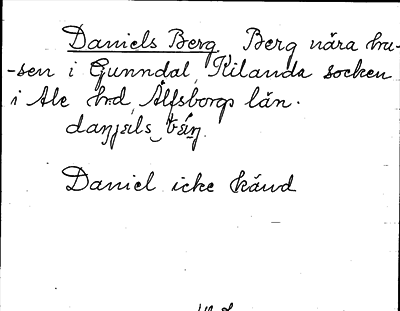 Daniels Berg, Berg nära hu-
-sen i Gunndal, Kilanda socken
i Ale hrd, Älfsborgs län.
Daniel icke känd